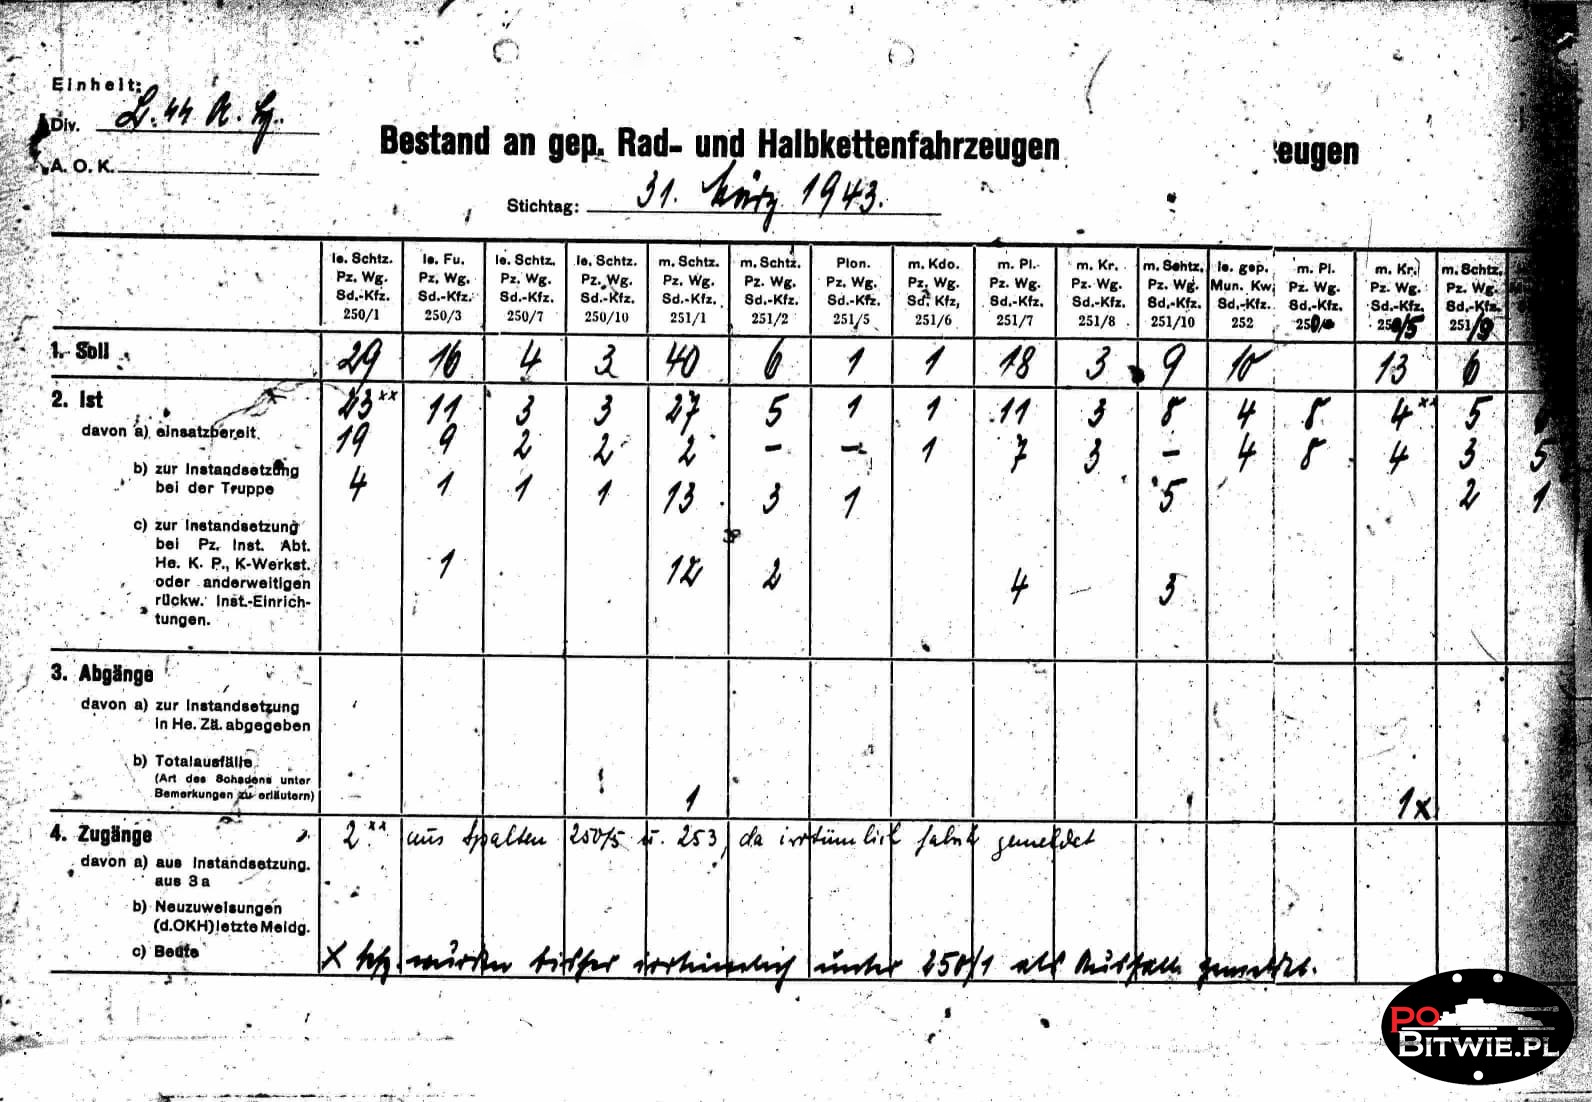 Einheit:
Div. L. SS A. H.
A. O. K.
Bestand an gep. Rad- und Halbkettenfahrzeugen
eugen
Stichtag: 31. März 1943.
le. Schtz. Pz. Wg. Sd.-Kfz. 250/1
le. Fu. Pz. Wg. Sd.-Kfz. 250/3
le. Schtz. Pz. Wg. Sd.-Kfz. 250/7
le. Schtz. Pz. Wg. Sd.-Kfz. 250/10
m. Schtz. Pz. Wg. Sd.-Kfz. 251/1
m. Schtz. Pz. Wg. Sd.-Kfz. 251/2
Pion. Pz. Wg. Sd.-Kfz. 251/5
m. Kdo. Pz. Wg. Sd. Kfz, 251/6
m. Pi. Pz. Wg. Sd.-Kfz. 251/7
m. Kr. Pz. Wg. Sd.-Kfz. 251/8
m. Schtz. Pz. Wg. Sd.-Kfz. 251/10
le. gep. Mun. Kw. Sd.-Kfz. 252
m. Pi. Pz. Wg. Sd.-Kfz.
m. Kr. Pz. Wg. Sd.-Kfz. /5
m. Schtz. Pz. Wg. Sd.-Kfz. 251/9
1. Soll 29 16 4 3 40 6 1 1 18 3 9 10 13 6
2. Ist 23xx 11 3 3 27 5 1 1 11 3 8 4 8 4xx 5
davon a) einsatzbereit 19 9 2 2 2 – – 1 7 3 – 4 8 4 3 5
b) zur Instandsetzung
bei der Truppe 4 1 1 1 13 3 1 5 2 1
c) zur Instandsetzung
bei Pz. Inst. Abt.
He. K. P., K-Werkst. 1 12 2
oder anderweitigen 4 3
rückw. Inst.-Einrich-
tungen.
3. Abgänge
davon a) zur Instandsetzung
in He. Zä. abgegeben
b) Totalausfälle
(Art des Schadens unter
Bemerkungen zu erläutern) 1 1x
4. Zugänge 2xx aus Spalten 250/5 u. 253, da irrtümlich falsch gemeldet
davon a) aus Instandsetzung
aus 3a
b) Neuzuweisungen
(d.OKH) letzte Meldg.
c) Beute
x Kfz. wurden bisher irrtümlich unter 250/1 als Ausfall gemeldet.
PO
BITWIE.PL